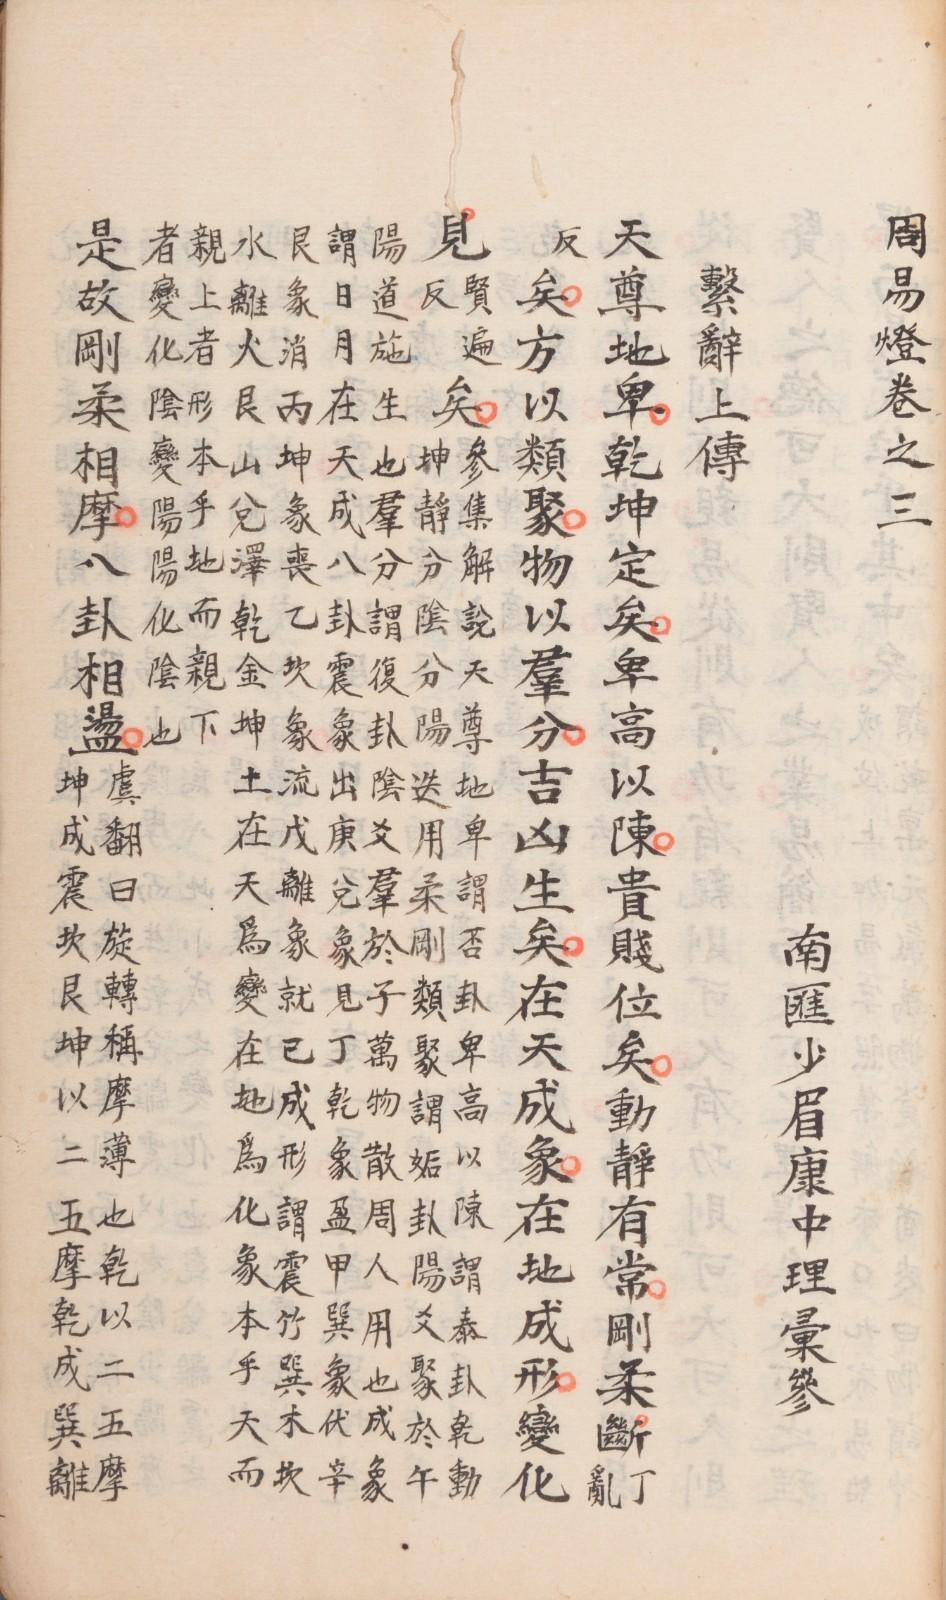 周易燈卷之三
南匯少眉康中理彙參
繫辭上傳
天尊地卑乾坤定矣卑高以陳貴賤位矣動靜有常剛柔斷丁亂
反矣方以類聚物以羣分吉凶生矣在天成象在地成形變化
見賢遍反矣
參集解說天尊地卑謂否卦卑高以陳謂泰卦乾動
坤靜分陰分陽迭用柔剛類聚謂姤卦陽爻聚於午
陽道施生也羣分謂復卦陰爻羣於子萬物散周人用也成象
謂日月在天成八卦震象出庚兌象見丁乾象盈甲巽象伏辛
艮象消丙坤象喪乙坎象流戊離象就己成形謂震竹巽木坎
水離火艮山兌澤乾金坤土在天爲變在地爲化象本乎天而
親上者形本乎地而親下
者變化陰變陽陽化陰也
是故剛柔相摩八卦相盪
虞翻曰旋轉稱摩薄也乾以二五摩
坤成震坎艮坤以二五摩乾成巽離